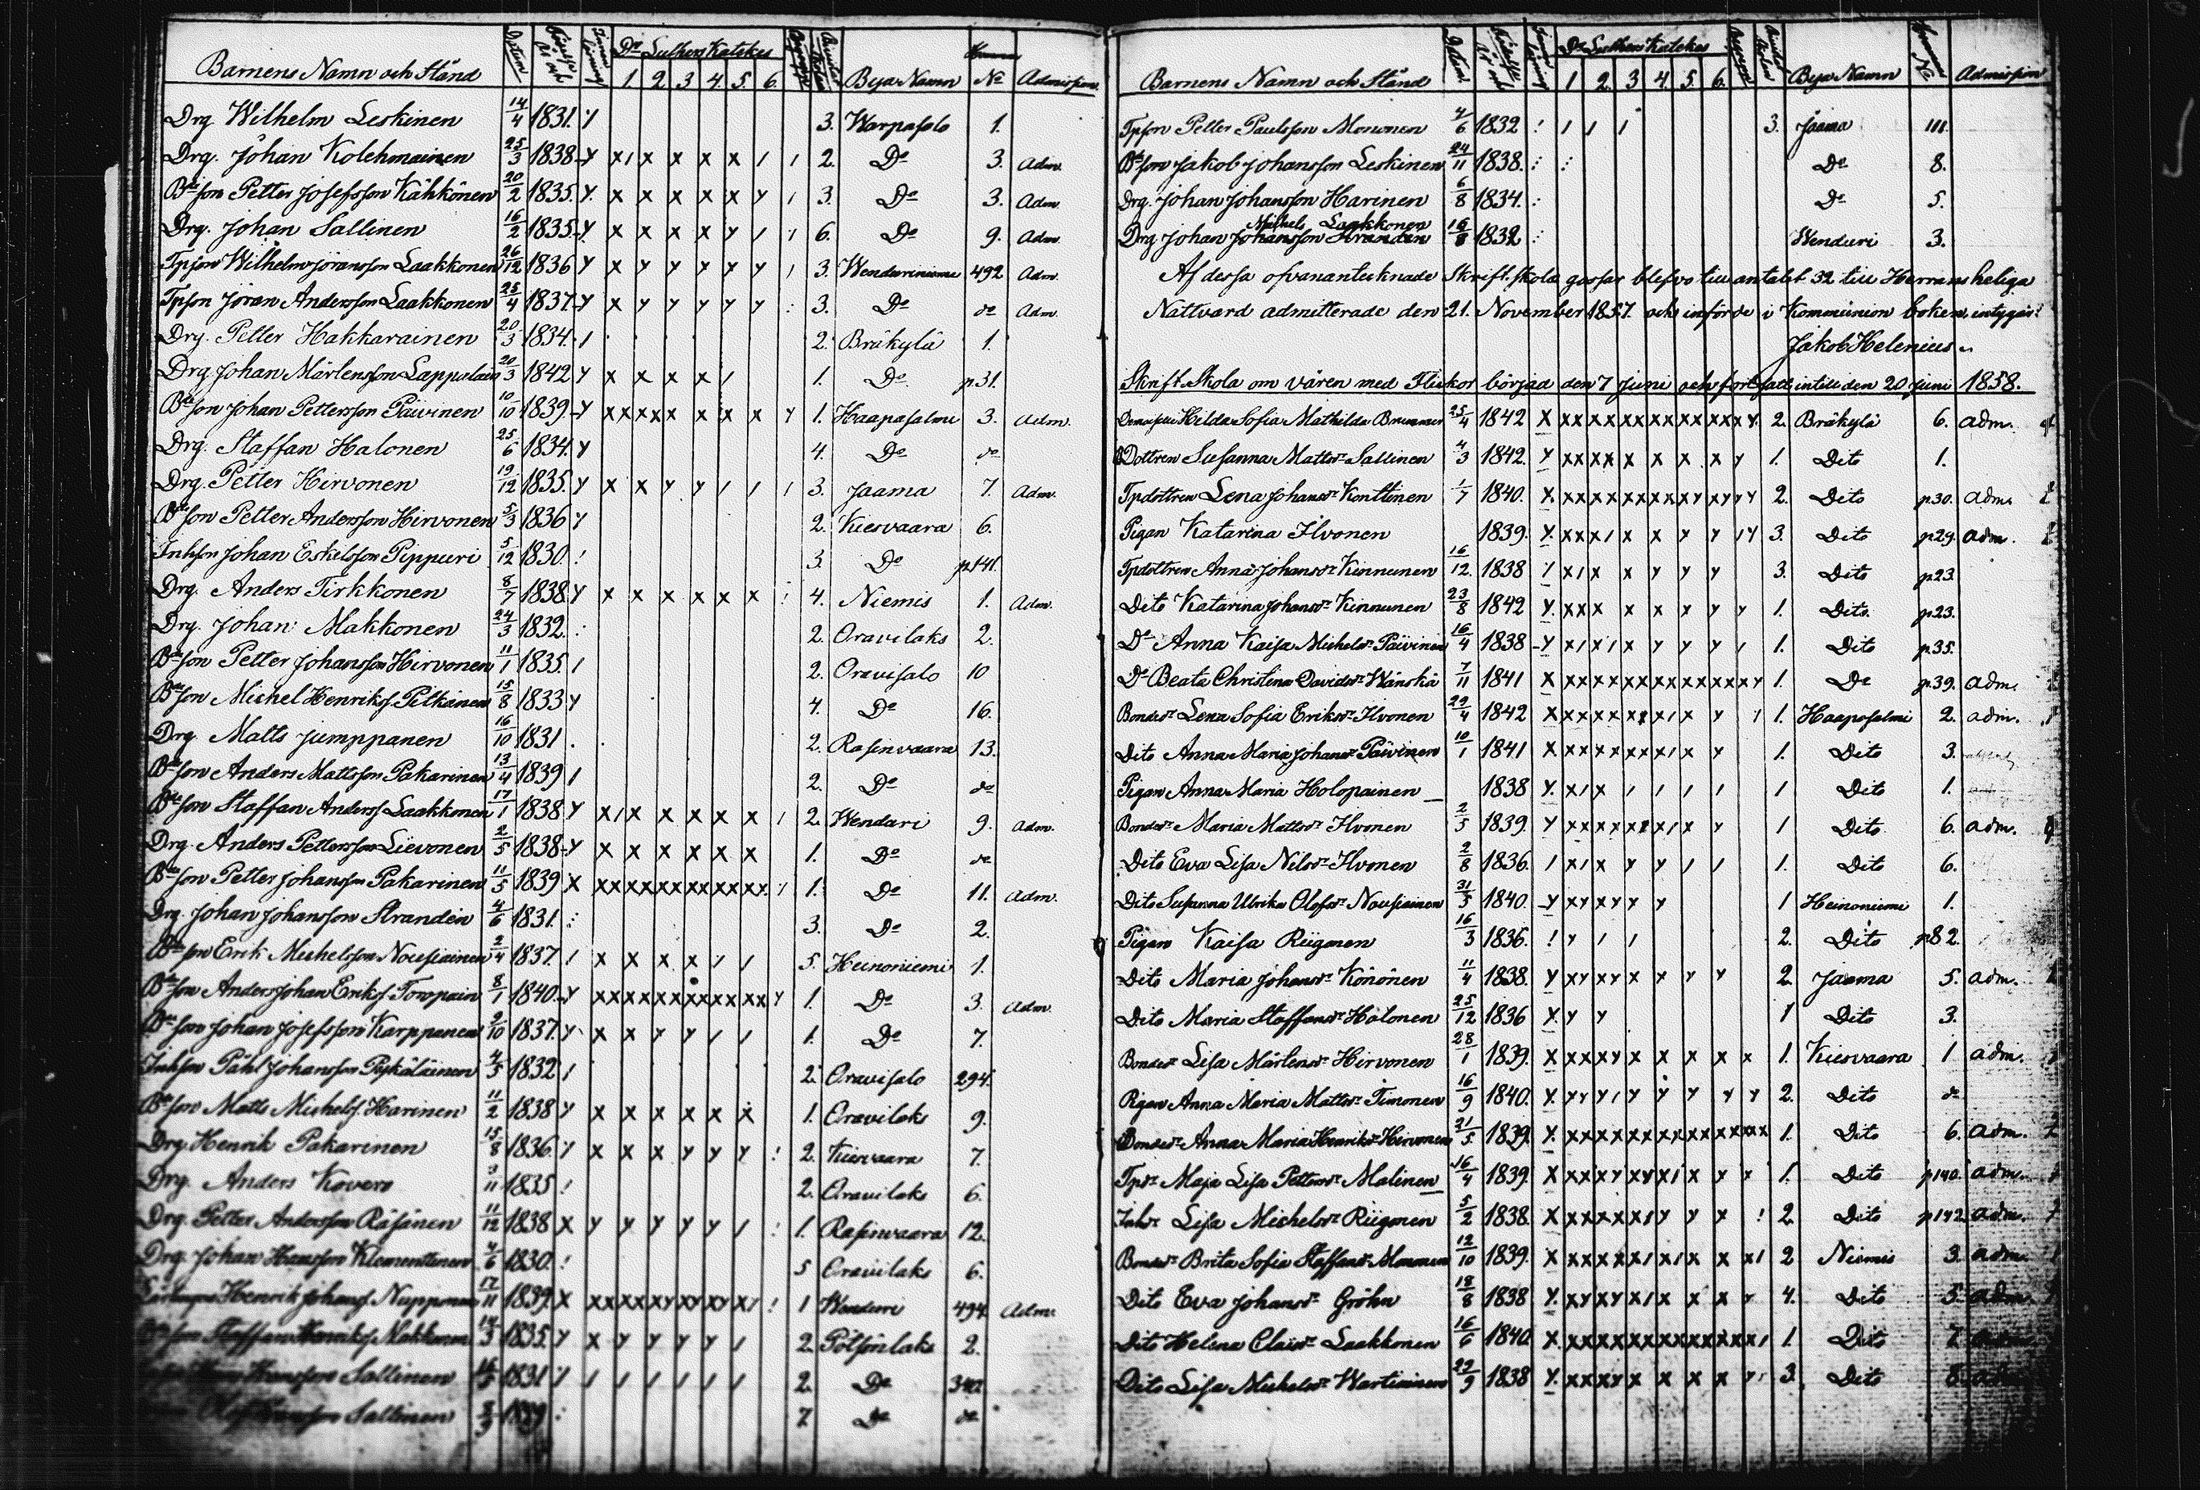 Barnens Namn och Stånd Datum Födelse År och Innan läsning Dr Luthers Katekes 1. 2. 3. 4. 5. 6. Begrepp Bevistat Skolan Bya Namn Hemman No Admission.
Drg Wilhelm Leskinen 14/4 1831. y 3. Warpasalo 1.
Drg. Johan Kolehmainen 25/3 1838 y x 1 x x x x 1 1 2. Do 3. Adm.
Bdeson Petter Josefsson Kähkönen 20/2 1835. y. x x x x x y 1 3. Do 3. Adm.
Drg. Johan Sallinen 16/2 1835. y. x x x x y 1 1 6. Do 9. Adm.
Tpson Wilhelm Jöransson Laakkonen 26/12 1836 y x y y y y y 1 3. Wenduriniemi 492 Adm.
Tpson Jöran Andersson Laakkonen 25/4 1837 y x y y y y y : 3. Do do Adm.
Drg. Petter Hakkarainen 20/3 1834. 1 2. Bräkylä 1.
Drg Johan Mårtensson Lappalain 20/3 1842 y x x x x 1 1. Do p31.
Bdeson Johan Pettersson Päivinen 10/10 1839 y xxxxx x x x y 1. Haapasalmi 3. Adm.
Drg. Staffan Halonen 25/6 1834. y 4. Do do
Drg. Petter Hirvonen 19/12 1835. y x x y y 1 1 1 3. Jaama 7. Adm.
Bdeson Petter Andersson Hirvonen 5/3 1836 y 2. Kiesvaara 6.
Inhson Johan Eskelsson Pippuri 5/12 1830. ! 3. Do p141.
Drg. Anders Tirkkonen 8/7 1838. y x x x x x x : 4. Niemis 1. Adm.
Drg. Johan Makkonen 24/3 1832. : 2. Oravilaks 2.
Bdeson Petter Johansson Hirvonen 11/1 1835. 1 2. Oravisalo 10
Bdeson Michel Henriks. Pelkänen 15/8 1833 y 4. Do 16.
Drg. Matts Jumppanen 16/10 1831 . 2. Rasinvaara 13.
Bdeson Anders Mattsson Pakarinen 13/4 1839 1 2. Do do
Bdeson Staffan Anderss Laakkonen 17/1 1838 y x 1 x x x x x 1 2. Wendari 9. Adm.
Drg. Anders Pettersson Lievonen 2/5 1838 y x x x x x x 1. Do do
Bdeson Petter Johansson Pakarinen 11/5 1839 x xxxxxxxxxxxx. y 1. Do 11. Adm.
Drg. Johan Johansson Strandén 4/6 1831. : 3. Do 2.
Bdeson Erik Michelsson Nousiainen 2/4 1837. 1 x x x x 1 1 5. Heinoniemi 1.
Bdeson Anders Johan Eriks. Torvpain 8/1 1840 y xxxxxxxxxxxx y 1. Do 3. Adm.
Bdeson Johan Josefsson Karppanen 2/10 1837. y x x y y 1 1 1. Do 7.
Inhson Påhl Johansson Pykäläinen 4/5 1832 1 2. Oravisalo 294.
Bdeson Matts Michels. Harinen 11/2 1838 y x x x x x x 1. Oravilaks 9.
Drg. Henrik Pakarinen 15/8 1836. y x x x y y y ! 2. Kiesvaara 7.
Drg. Anders Kovero 3/11 1835. ! 2. Oravilaks 6.
Drg. Petter Andersson Räsänen 11/12 1838 x y y y y y 1 : 1. Rasinvaara 12.
Drg. Johan Hansson Klemettinen 4/6 1830. ! 5 Oravilaks 6.
Henrik Johans. Nupponen 17/11 1839. x xxxxxyxyxyx1 ! 1 Wenduri 494. Adm.
Bdeson Staffan Henriks. Makkonen 3 1835. y x y y y y 1 2. Pötsönlaks 2.
Hansson Sallinen 1831 y 1 1 1 1 1 1 2. Do 340.
Olof Hansson Sallinen : 7. Do do
Barnens Namn och Stånd Datum Födelse År och Innan läsning Dr Luthers Katekes 1 2. 3 4. 5. 6. Begrepp Bevistat Skolan Bya Namn Hemmans No Admission
Tpson Petter Paulsson Mononen 4/6 1832 ! 1 1 1 3. Jaama 111.
Bdeson Jakob Johansson Leskinen 24/11 1838. : : Do 8.
Drg. Johan Johansson Harinen 6/8 1834. : Do 5.
Michels Laakkonen
Drg Johan Johansson Strandén 16/8 1832 : Wenduri 3.
Af dessa ofvanantecknade Skrift skola gossar blefvo till antalet 32 till Herrans heliga
Nattvard admitterade den 21. November 1857. och införde i Kommunion boken, intygas:
Jakob Helenius
Skrift Skola om våren med Flickor började den 7 Juni och fortsatt intill den 20 Juni 1858.
Demoiselle Hilda Sofia Mathilda Brummer 25/4 1842 X xxxxxxxxxxxxx y. 2. Bräkylä 6. adm.
Dottren Susanna Mattsdr Sallinen 4/3 1842. y xxxx x x x x y 1. Dito 1.
Tpdottren Lena Johansdr Konttinen 1/7 1840. X xxxxxxxxxy xyyy 2. Dito p30. adm.
Pigan Katarina Ilvonen 1839. y. xxx1 x x y y 1y 3. Dito p29. adm.
Tpdottren Anna Johansdr Kinnunen 16/12 1838 1 x1x x y y y 3. Dito p23.
Dito Katarina Johansdr Kinnunen 23/8 1842 y. xxx x x y y y 1. Dito. p23.
Do Anna Kaisa Michelsdr Päivinen 16/4 1838 y x1x1x y y y 1 1. Dito p35.
Do Beata Christina Davidsdr Wänskä 7/11 1841 X xxxxxxxxxxxxx y 1. Do p39. adm.
Bondedr Lena Sofia Eriksdr Ilvonen 29/4 1842 X xxxxxxx1x y 1 1. Haapasalmi 2. adm.
Dito Anna Maria Johansdr Päivinen 10/1 1841 X xxxxxxx1x y 1. Dito 3.
Pigan Anna Maria Holopainen 1838 y. x1x 1 1 1 1 1 Dito 1.
Bondedr Maria Mattsdr Ilvonen 2/5 1839. y xxxxxxx1x y 1 Dito 6. adm.
Dito Eva Lisa Nilsdr Ilvonen 2/8 1836. 1 x1x y y 1 1 1. Dito 6.
Dito Susanna Ulrika Olofsdr Nousiainen 31/3 1840. y xyxyy y 1 Heinoniemi 1.
Pigan Kaisa Riigonen 16/3 1836. ! y 1 1 2. Dito p82.
Dito Maria Johansdr Könönen 11/4 1838. y xyxyx x y y 2. Jaama 5. adm.
Dito Maria Staffansdr Halonen 25/12 1836 y. y y 1 Dito 3.
Bondedr Lisa Mårtensdr Hirvonen 28/1 1839. X xxxyx x x x x 1. Kiesvaara 1 adm.
Pigan Anna Maria Mattsdr Timonen 16/9 1840. y. yy1y y y y y 2. Dito do
Bondedr Anna Maria Henriksdr Hirvonen 21/5 1839 y. xxxxxxxxxxxxxx 1. Dito 6. adm.
Tpdr Maja Lisa Pettersdr Malinen 16/4 1839. X xxxyxyx1x y y 1. Dito p140 adm.
Inhdr Lisa Michelsdr Riigonen 5/2 1838. X xxxxx1y y x ! 2. Dito p142 adm.
Bondedr Brita Sofia Staffansdr Mononen 12/10 1839. X xxxxx1x1x x x1 2 Niemis 3. adm.
Dito Eva Johansdr Gröhn 18/8 1838 y. xyxyx1x x x y 4. Dito 5. adm.
Dito Helena Clasdr Laakkonen 16/6 1840. X. xxxxxxxxxxxxx1 1. Dito 7 adm.
Dito Lisa Michelsdr Wartiainen 29/9 1838 y. xxxyx x x x y1 3. Dito 8. adm.